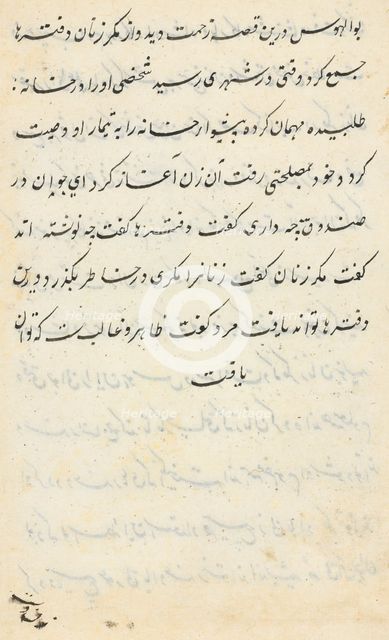 بوالهوس درین قصه زحمت دید و از مکر زنان دفترها
جمع کرد وقتی در شهری رسید شخصی او را در خانه
طلبیده مهمان کرده بیشتر در خانه را به تیمار او وصیت
کرد و خود بمصلحتی رفت آن زن آغاز کرد ای جوان در
صندوق چه داری گفت دفترها گفت چه نوشته اند
گفت مکر زنان گفت زنانرا مکری در خاطر بگذرد درین
دفترها تواند یافت مرد گفت ظاهر و غالبست که توان
یافت
Heritage
Heritage
Heritage
Heritage